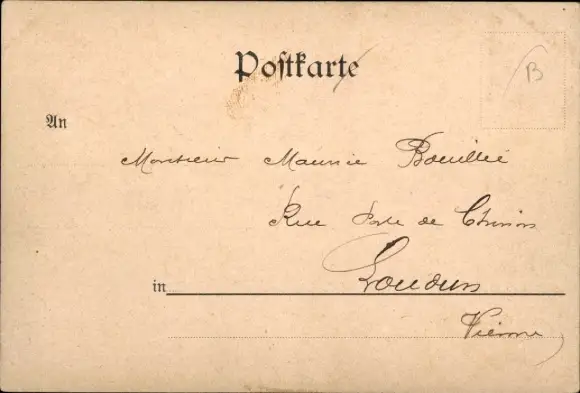 Postkarte
B
An
Monsieur Maurice Bouillié
Rue Porte de Chinon
in Loudun
Vienne